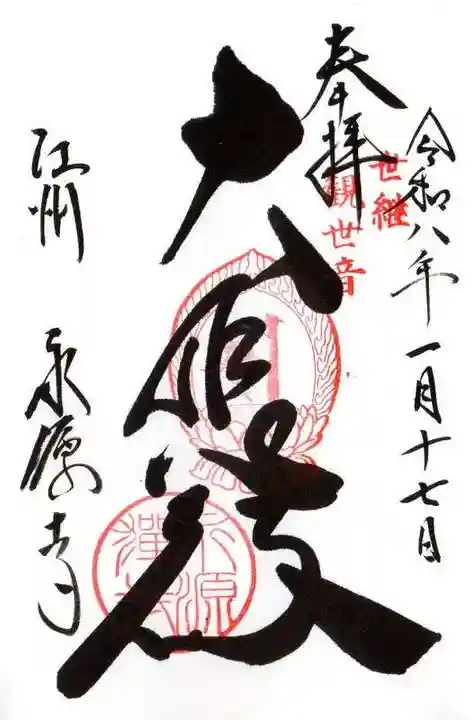 令和八年一月十七日
奉拝
世継
観世音
大悲殿
江州 永源寺